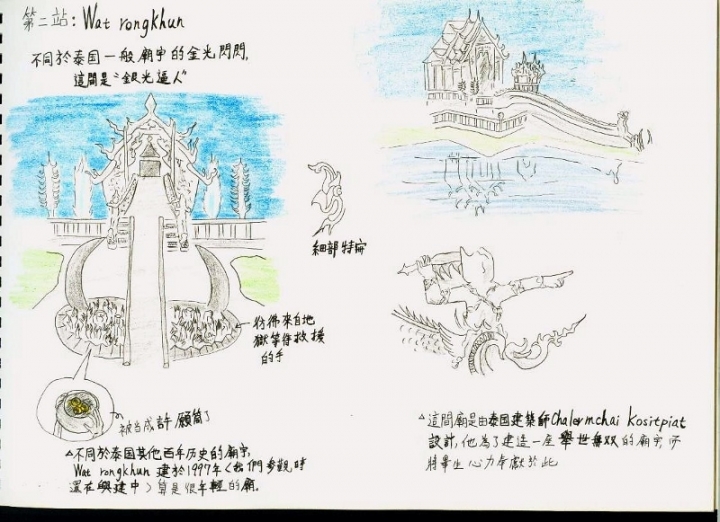 第二站: Wat rongkhun
不同於泰国一般廟宇的金光閃閃,
這間是“銀光逼人”
細部特寫
彷彿來自地
獄等你救援
的手
被当成許願筒了
△不同於泰国其他百年历史的廟宇,
Wat rongkhun 建於1997年〈我們参觀時
還在興建中〉算是很年輕的廟.
△這間廟是由泰国建築師Chalermchai Kositpiat
設計,他為了建造一座舉世無双的廟宇,而
將畢生心力奉獻於此